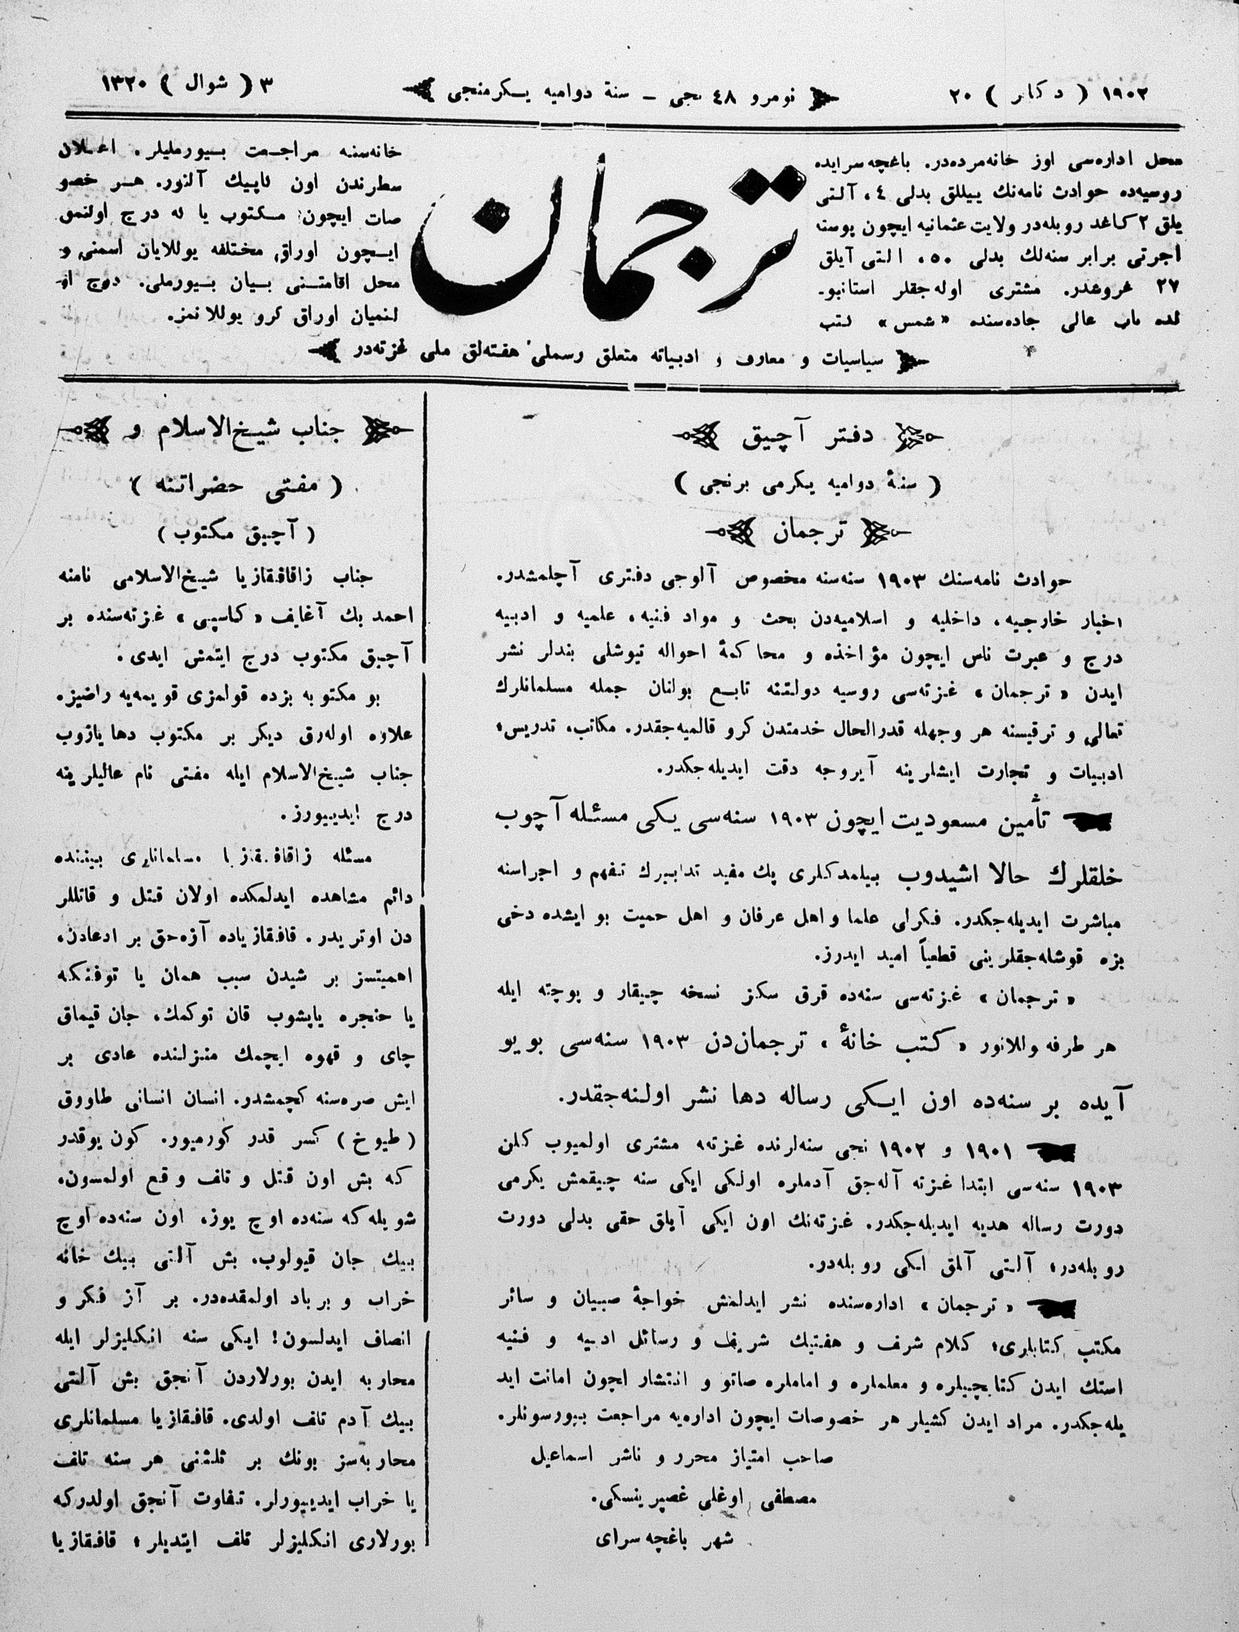 ١٩٠٢ ( دكابر ) ٢٠
نومرو ٤٨ نجى – سنهٔ دواميه يكرمنجى
٣ ( شوال ) ١٣٢٠
محل اداره‌سى اوز خانه‌مرده‌در. باغچه‌سرايده
روسيه‌ده حوادث نامه‌نك ييللق بدلى ٤، آلتى
يلق ٢ كاغد روبله‌در ولايت عثمانيه ايچون پوسته
اجرتى برابر سنه‌لك بدلى ٥٠، التى آيلق
٢٧ غروشدر. مشترى اوله‌جقلر استانبو-
لده باب عالى جاده‌سنده «شمس» كتب
ترجمان
خانه‌سنه مراجعت بيورمليلر. اعلان
سطرندن اون كاپيك آلنور. هر خصو
صات ايچون مكتوب يا له درج اولنمق
ايچون اوراق مختلفه يوللايان اسمنى و
محل اقامتنى بيان بيورملى. درج او
لنميان اوراق كرو يوللانمز.
سياسيات و معارف و ادبياته متعلق رسملى هفته‌لق ملى غزته‌در
دفتر آچيق
( سنهٔ دواميه يكرمى برنجى )
ترجمان
حوادث نامه‌سنك ١٩٠٣ سنه‌سنه مخصوص آلوجى دفترى آچلمشدر.
اخبار خارجيه، داخليه و اسلاميه‌دن بحث و مواد فنيه، علميه و ادبيه
درج و عبرت ناس ايچون مؤاخذه و محاكمهٔ احواله تيوشلى بندلر نشر
ايدن «ترجمان» غزته‌سى روسيه دولتنه تابع بولنان جمله مسلمانلرك
تعالى و ترقيسنه هر وجهله قدرالحال خدمتدن كرو قالميه‌جقدر. مكاتب، تدريس،
ادبيات و تجارت ايشلرينه آيروجه دقت ايديله‌جكدر.
تأمين مسعوديت ايچون ١٩٠٣ سنه‌سى يكى مسئله آچوب
خلقلرك حالا اشيدوب بيلمدكلرى پك مفيد تدابيرك تفهم و اجراسنه
مباشرت ايديله‌جكدر. فكرلى علما و اهل عرفان و اهل حميت بو ايشده دخى
بزه قوشله‌جقلرينى قطعياً اميد ايدرز.
«ترجمان» غزته‌سى سنه‌ده قرق سكز نسخه چيقار و پوچته ايله
هر طرفه يوللانور «كتب خانهٔ» ترجمان‌دن ١٩٠٣ سنه‌سى بويو
آيده بر سنه‌ده اون ايكى رساله دها نشر اولنه‌جقدر.
١٩٠١ و ١٩٠٢ نجى سنه‌لرنده غزته‌ﻪ مشترى اولميوب كلن
١٩٠٣ سنه‌سى ابتدا غزته آله‌جق آدملره اولكى ايكى سنه چيقمش يكرمى
دورت رساله هديه ايديله‌جكدر. غزته‌نك اون ايكى آيلق حقى بدلى دورت
روبله‌در، آلتى آيلق ايكى روبله‌در.
«ترجمان» اداره‌سنده نشر ايدلمش خواجهٔ صبيان و سائر
مكتب كتابلرى، كلام شرف و هفتيك شريف و رسائل ادبيه و فنيه
استك ايدن كتابچيلره و معلملره و اماملره صاتو و انتشار ايچون امانت ايد
يله‌جكدر. مراد ايدن كشيلر هر خصوصات ايچون اداره‌يه مراجعت بيورسونلر.
صاحب امتياز محرر و ناشر اسماعيل
مصطفى اوغلى غصپرينسكى.
شهر باغچه‌سراى
جناب شيخ‌الاسلام و
( مفتى حضراتنه )
( آچيق مكتوب )
جناب زاقافقازيا شيخ‌الاسلامى نامنه
احمد بك آغايف «كاسپى» غزته‌سنده بر
آچيق مكتوب درج ايتمش ايدى.
بو مكتوبه بزده قولمزى قويمه‌يه راضيز.
علاوه اوله‌رق ديكر بر مكتوب دها يازوب
جناب شيخ‌الاسلام ايله مفتى نام عاليلرينه
درج ايدييورز.
مسئله زاقافقازيا مسلمانلرى بيننده
دائم مشاهده ايدلمكده اولان قتل و قاتللر
دن اوتريدر. قافقازياده آزه‌جق بر ادعادن،
اهميتسز بر شيدن سبب همان يا توفنكه
يا خنجره ياپشوب قان توكمك، جان قيماق
چاى و قهوه ايچمك منزلنده عادى بر
ايش صره‌سنه كچمشدر. انسان انسانى طاووق
( طيوخ ) كسر قدر كورميور. كون يوقدر
كه بش اون قتل و تلف وقع اولمسون.
شويله‌كه سنه‌ده اوچ يوز، اون سنه‌ده اوچ
بيك جان قيولوب، بش آلتى بيك خانه
خراب و برباد اولمقده‌در. بر آز فكر و
انصاف ايدلسون! ايكى سنه انكليزلر ايله
محاربه ايدن بورلاردن آنجق بش آلتى
بيك آدم تلف اولدى. قافقازيا مسلمانلرى
محاربه‌سز بونك بر ثلثنى هر سنه تلف
يا خراب ايدييورلر. تفاوت آنجق اولدركه
بورلارى انكليزلر تلف ايتديلر، قافقازيا